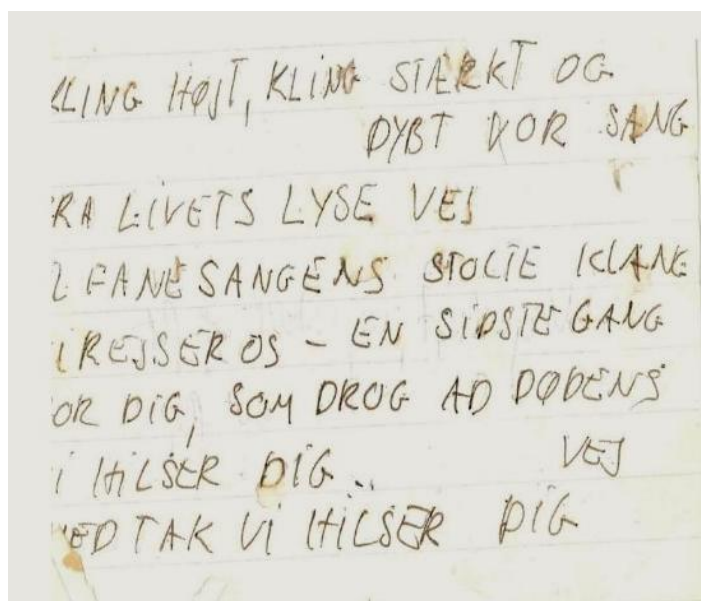 KLING HØJT, KLING STÆRKT OG
DYBT VOR SANG
RA LIVETS LYSE VEJ
L FANESANGENS STOLTE KLANG
I REJSER OS - EN SIDSTE GANG
OR DIG, SOM DROG AD DØDENS
VEJ
I HILSER DIG..
MED TAK VI HILSER DIG